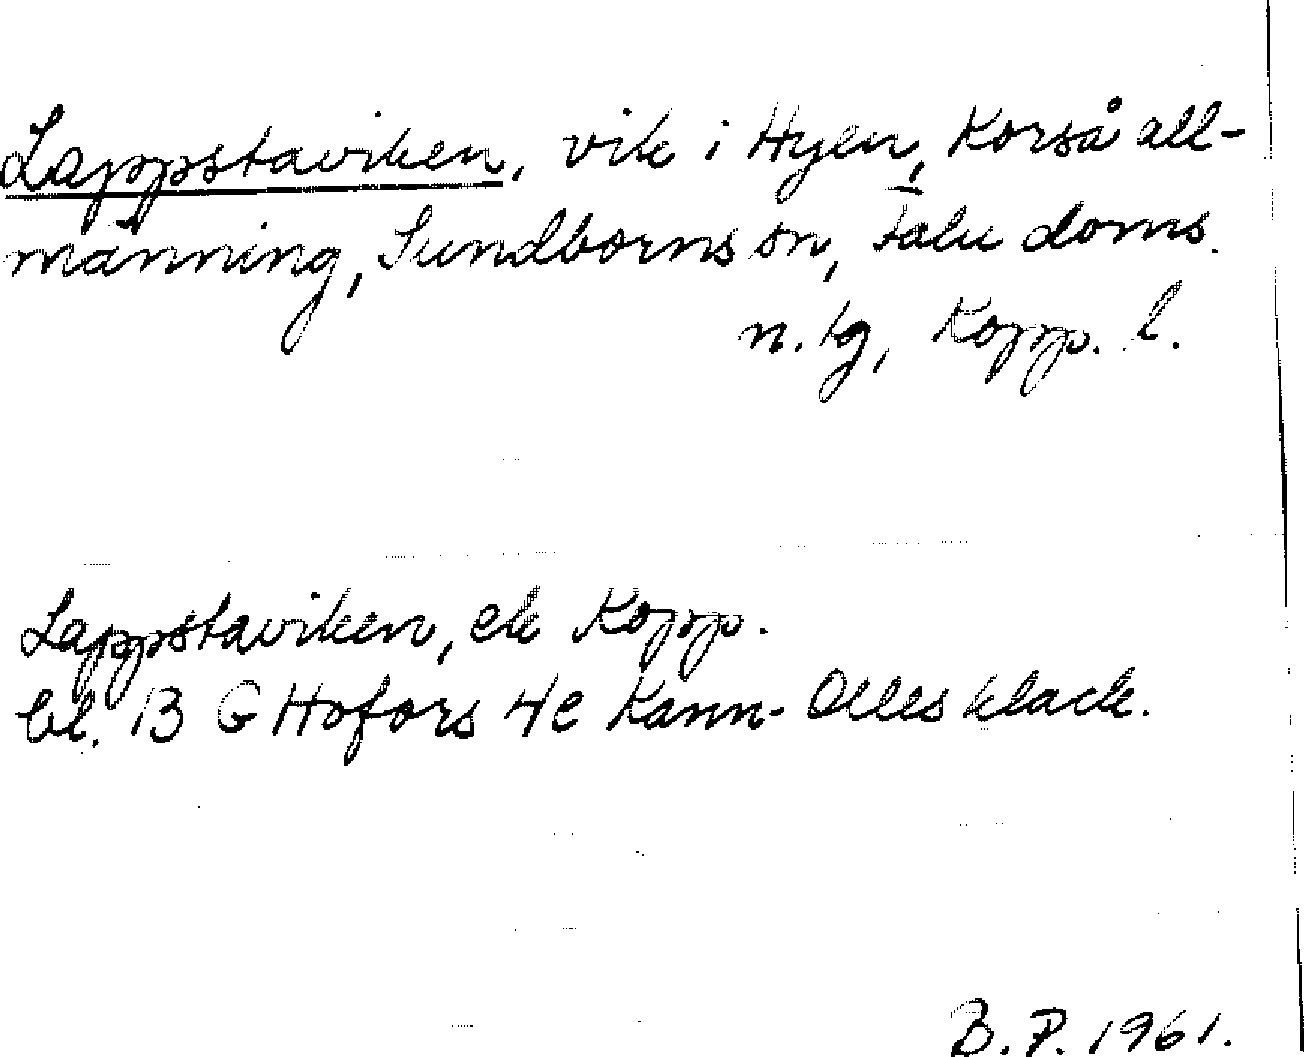 Lappstaviken, vik i Hyen, Korså all-
männing, Sundborns sn, Falu doms.
n. tg, Kopp. l.
Lappstaviken, ek Kopp.
bl. 13 G Hofors 4e Kann-Olles klack.
B. P. 1961.